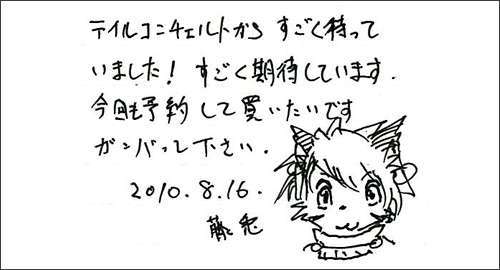 テイルコンチェルトから すごく待って
いました! すごく期待しています.
今回も予約して買いたいです
ガンバって下さい.
2010.8.16.
藤兎